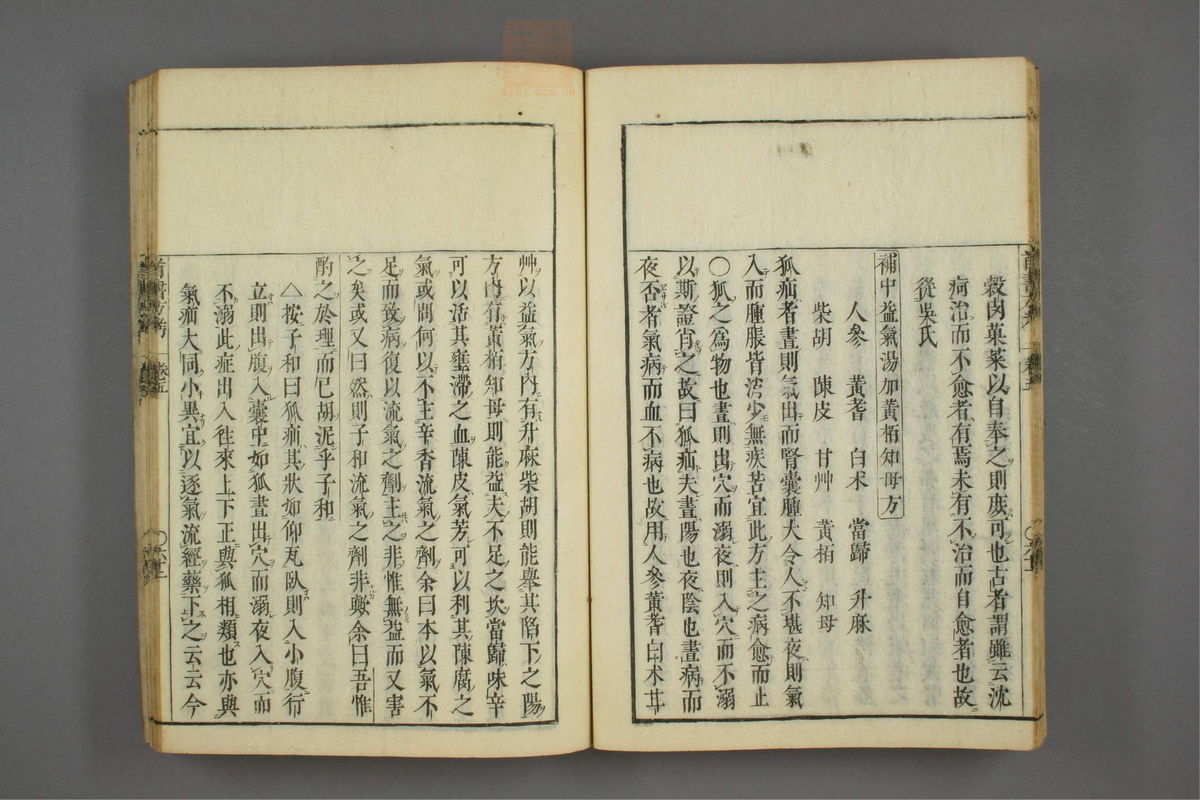 穀肉菓菜以自奉之則庶可也古者謂雖云沈
痾治而不愈者有焉未有不治而自愈者也故
從吳氏
補中益氣湯加黃栢知母方
人參　黃耆　白术　當歸　升麻
柴胡　陳皮　甘艸　黃栢　知母
狐疝者晝則氣出而腎囊腫大令人不堪夜則氣
入而腫脹皆消少無疾苦宜此方主之病愈而止
○狐之爲物也晝則出穴而溺夜則入穴而不溺
以斯證肖之故曰狐疝夫晝陽也夜陰也晝病而
夜否者氣病而血不病也故用人參黃耆白术甘
艸以益氣方內有升麻柴胡則能舉其陷下之陽
方內有黃栢知母則能益夫不足之坎當歸味辛
可以活其壅滯之血陳皮氣芳可以利其陳腐之
氣或問何以不主辛香流氣之劑余曰本以氣不
足而致病復以流氣之劑主之非惟無益而又害
之矣或又曰然則子和流氣之劑非歟余曰吾惟
酌之於理而已胡泥乎子和
△按子和曰狐疝其狀如仰瓦臥則入小腹行
立則出腹入囊中如狐晝出穴而溺夜入穴而
不溺此症出入往來上下正與狐相類也亦與
氣疝大同小異宜以逐氣流經藥下之云云今